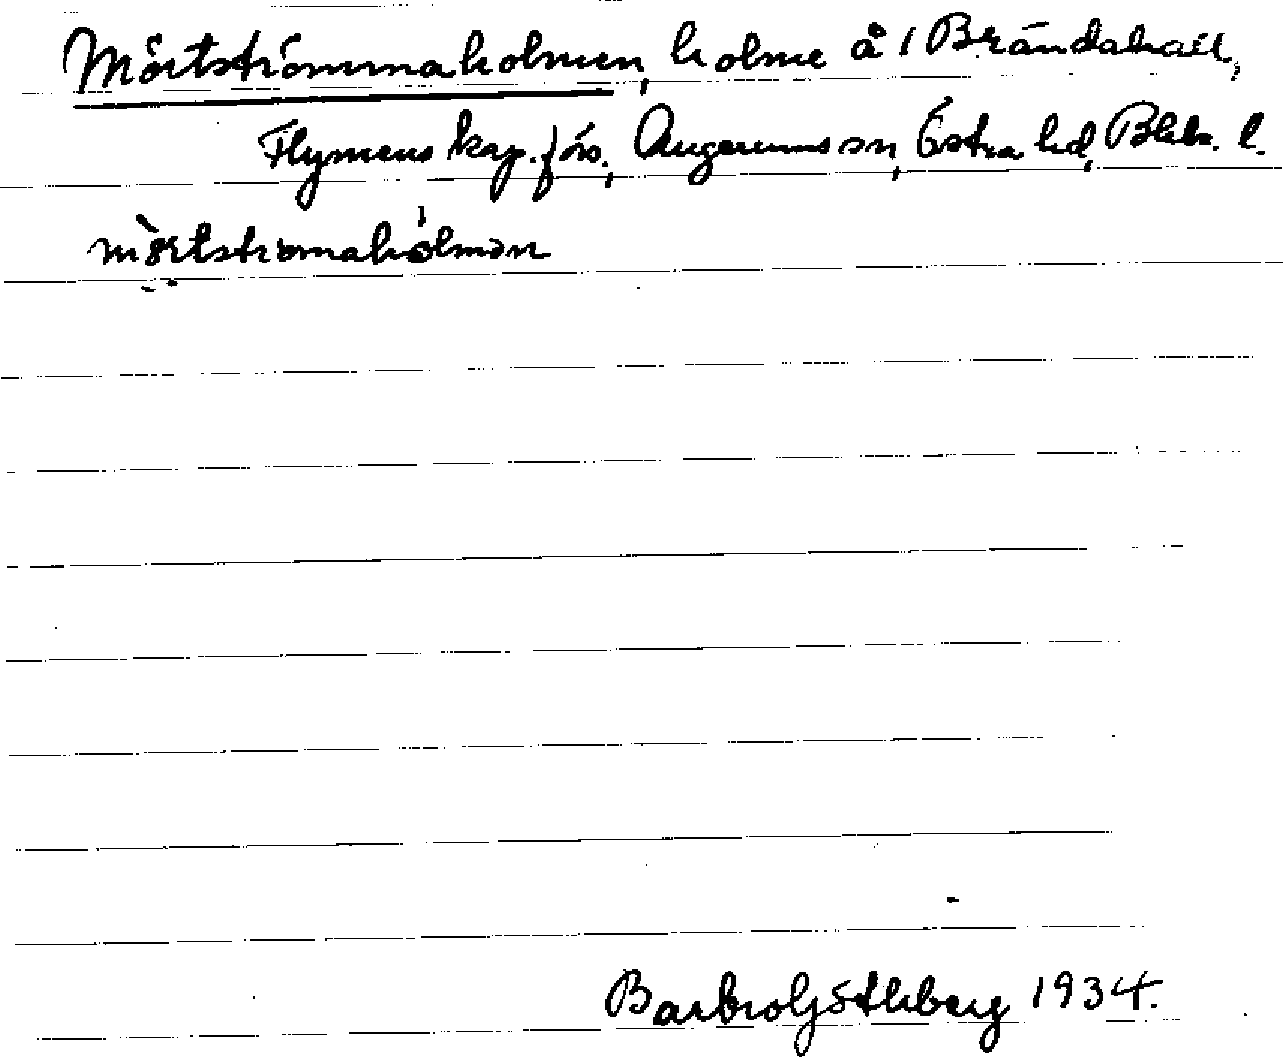 Mörtströmmaholmen, holme å 1 Brändahall,
Flymens kap. förs., Augerums sn, Östra hd, Blek. l.
mörtströmahólmən
Barbro Göthberg 1934.